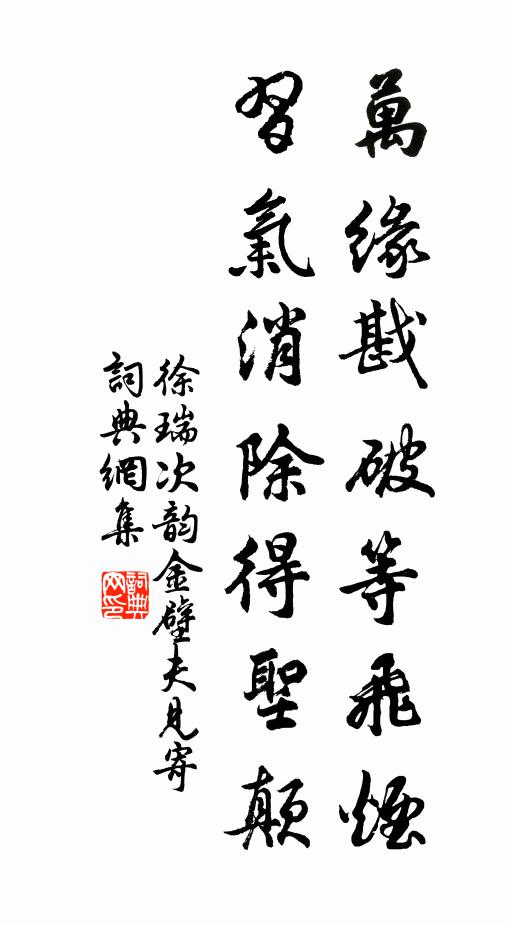 萬緣戡破等飛煙
習氣消除得聖顛
徐瑞次韵金壁夫見寄
詞典網集
詞典网印